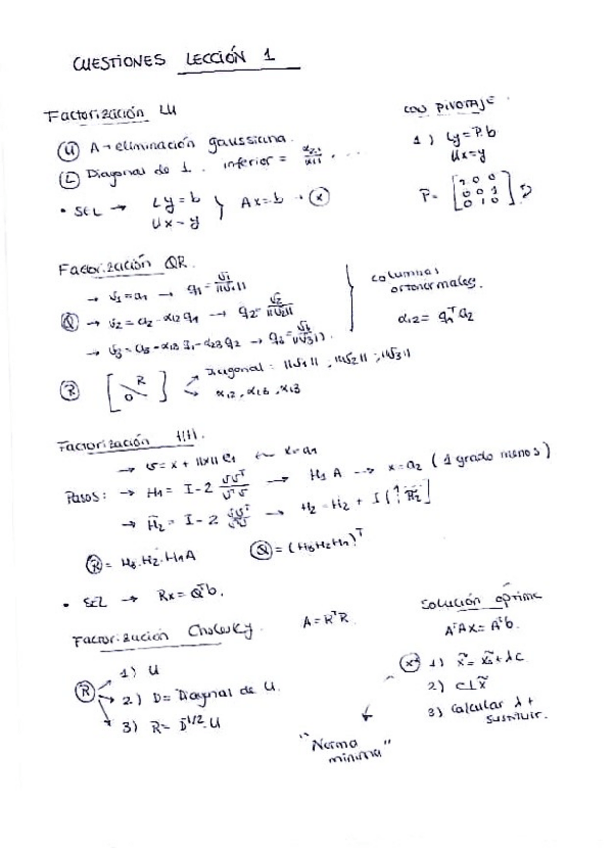 CUESTIONES LECCIÓN 1
Factorización LU
(U) A → eliminación gaussiana.
(L) Diagonal de 1. inferior = α21/α11, ...
• SEL → Ly = b
Ux = y } Ax = b → (x)
con PIVOTAJE.
1) Ly = P·b
Ux = y
P = [1 0 0
0 0 1
0 1 0]
Factorización QR.
→ v1 = a1 → q1 = v1/||v1||
(Q) → v2 = a2 - α12 q1 → q2 = v2/||v2||
→ v3 = a3 - α13 q1 - α23 q2 → q3 = v3/||v3||
columnas
ortonormales.
α12 = q1ᵀ a2
(R) [R 0] → Diagonal: ||v1||, ||v2||, ||v3||
→ α12, α13, α13
Factorización HH.
→ v = x + ||x|| e1 ← x = a1
Pasos: → H1 = I - 2 vvᵀ/vᵀv → H1 A → x = a2 (1 grado menos)
→ H̃2 = I - 2 vvᵀ/vᵀv → H2 = H̃2 + I
(R) = H3·H2·H1A
(Q) = (H3H2H1)ᵀ
• SEL → Rx = Qᵀb.
Factorización Cholesky. A = RᵀR
(R) → 1) U
→ 2) D = Diagonal de U.
→ 3) R = D^1/2·U
Solución óptima
AᵀAx = Aᵀb.
1) x̃ = x̃0 + λc
2) c⊥x̃
3) Calcular λ +
sustituir.
"Norma
mínima"